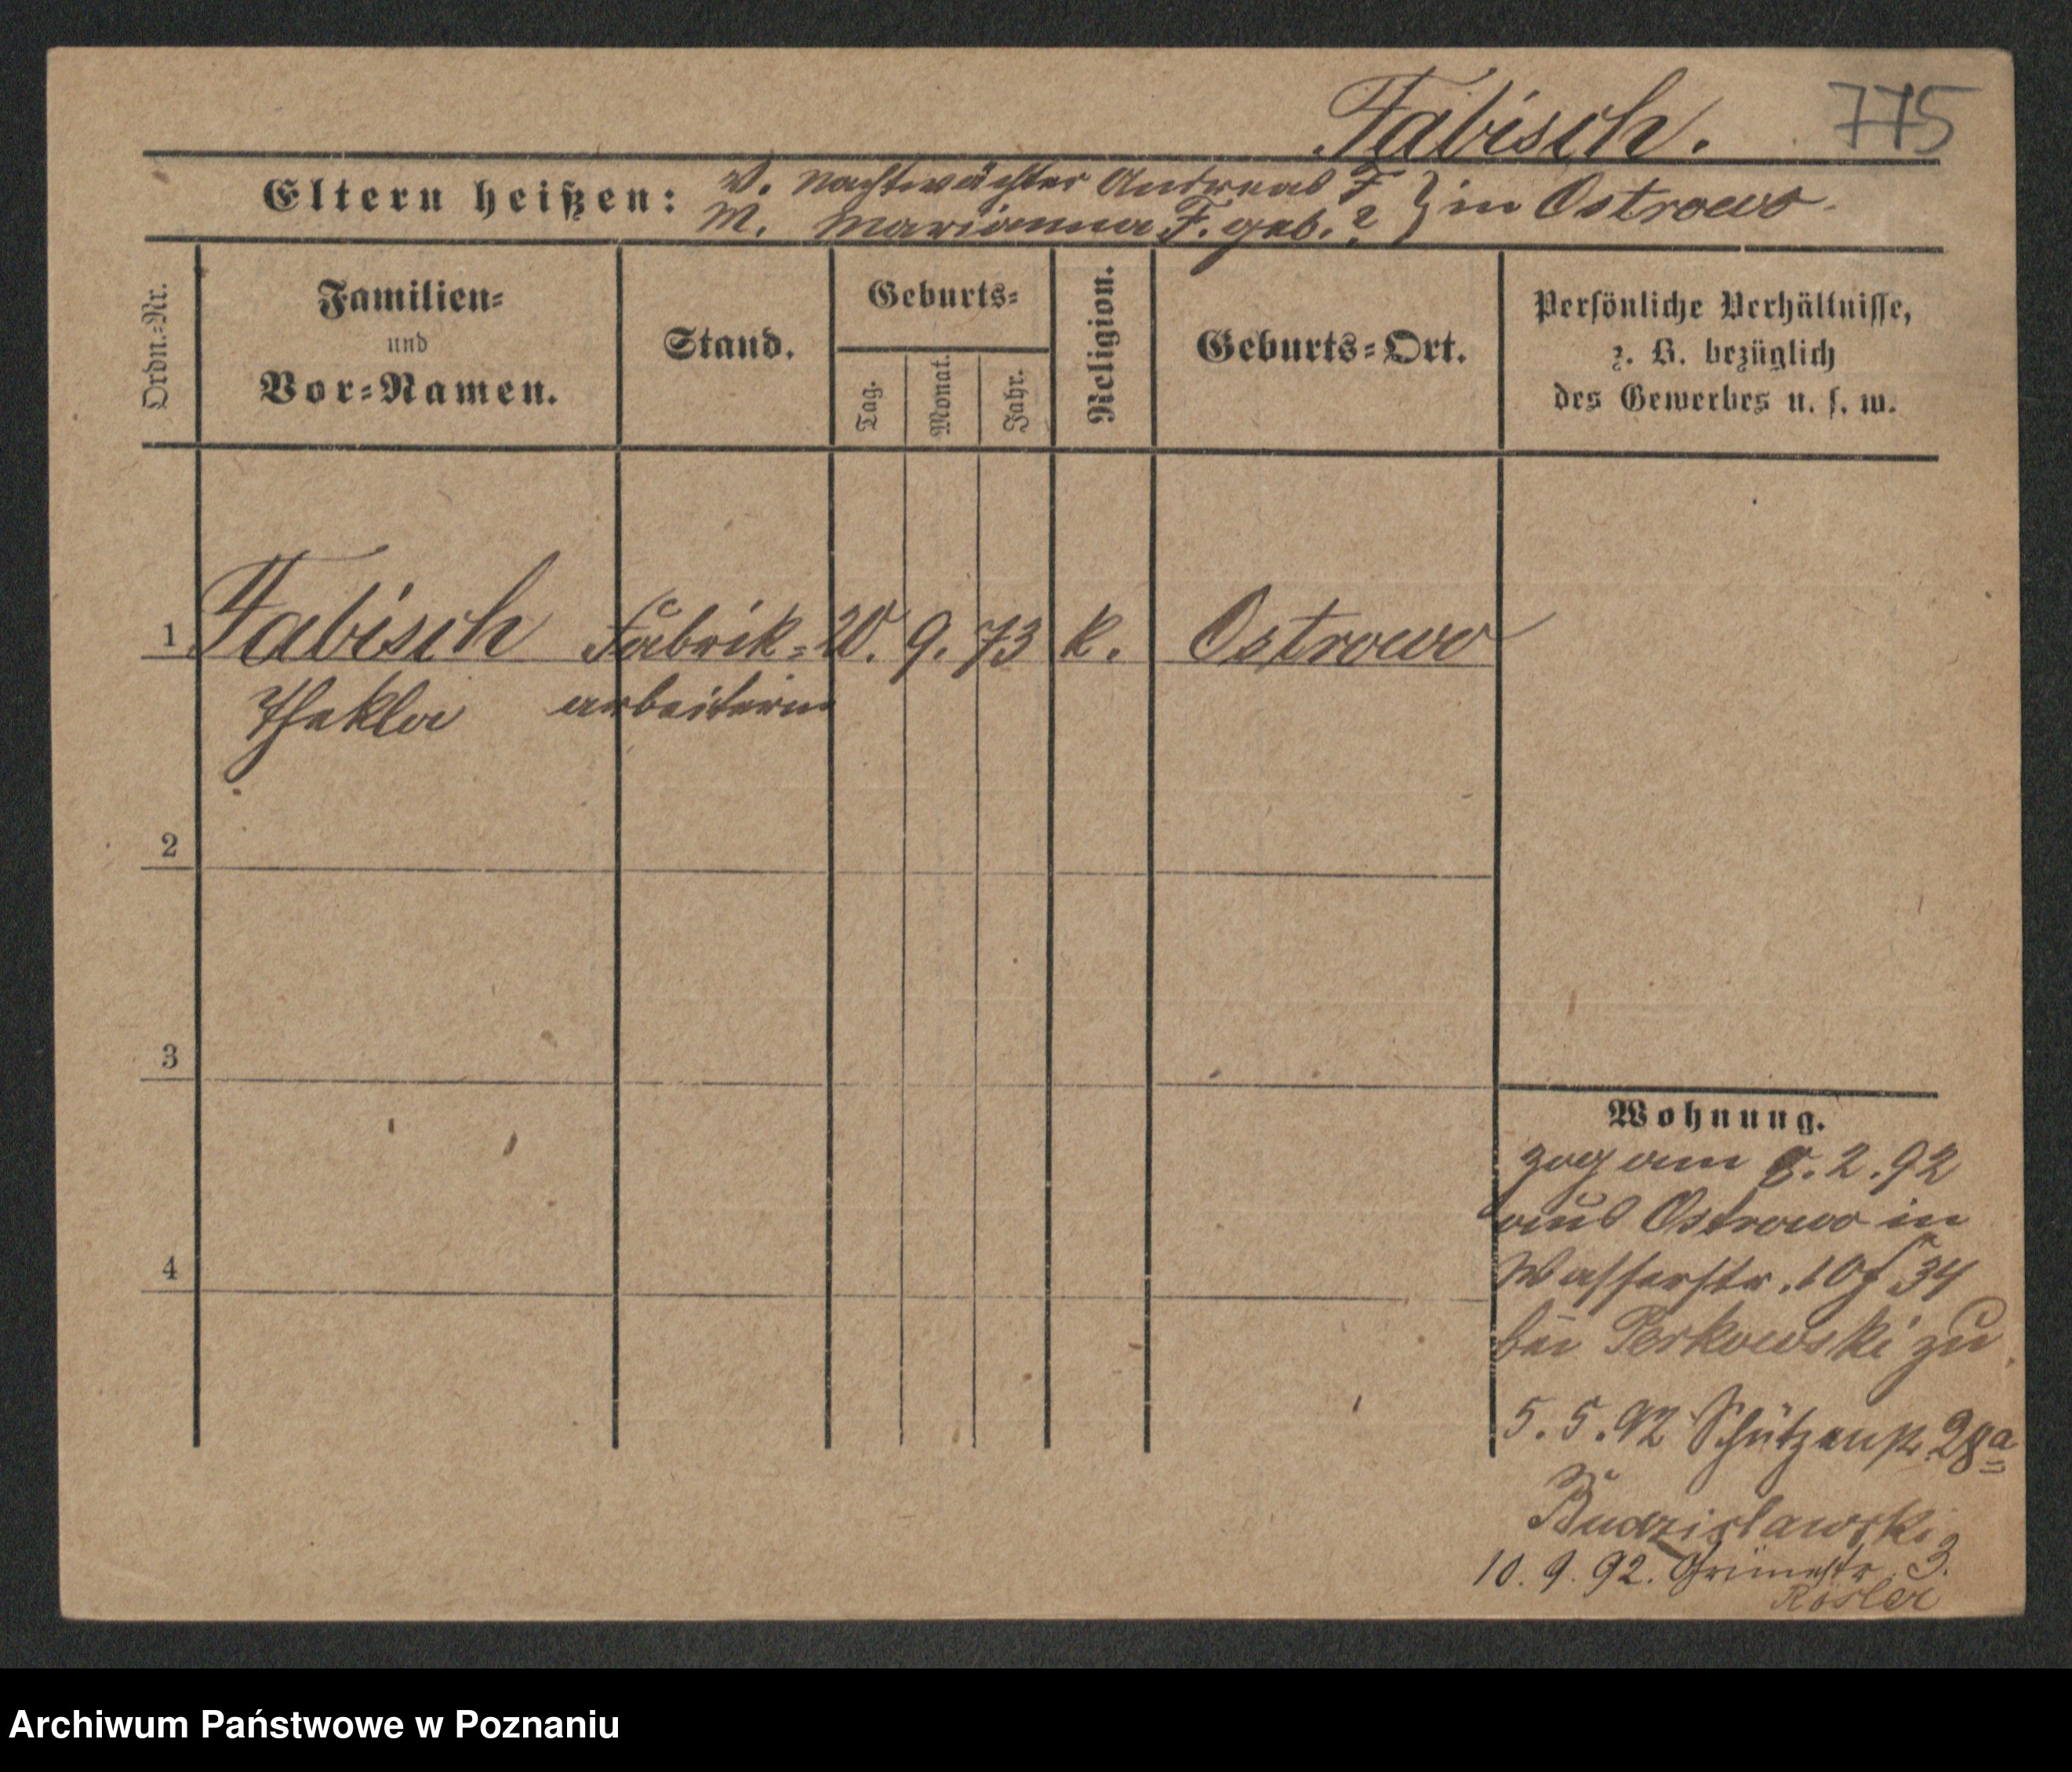 Fabisch.
775
Eltern heißen: V. Nachtwächter Andreas F. } in Ostrowo.
M. Marianna F. geb. ?
Ordn.-Nr.
Familien-
und
Vor-Namen.
Stand.
Geburts-
Tag.
Monat.
Jahr.
Religion.
Geburts-Ort.
Persönliche Verhältnisse,
z. B. bezüglich
des Gewerbes u. s. w.
1 Fabisch Fabrik- 20. 9. 73 k. Ostrowo
Thekla arbeiterin
2
3
4
Wohnung.
zog am 8.2.92
aus Ostrowo in
Wasserstr. 10 34
bei Perkowski zu.
5.5.92 Schützenstr. 28a
Budzislawski
10.9.92. Grünestr. 3.
Rösler
Archiwum Państwowe w Poznaniu